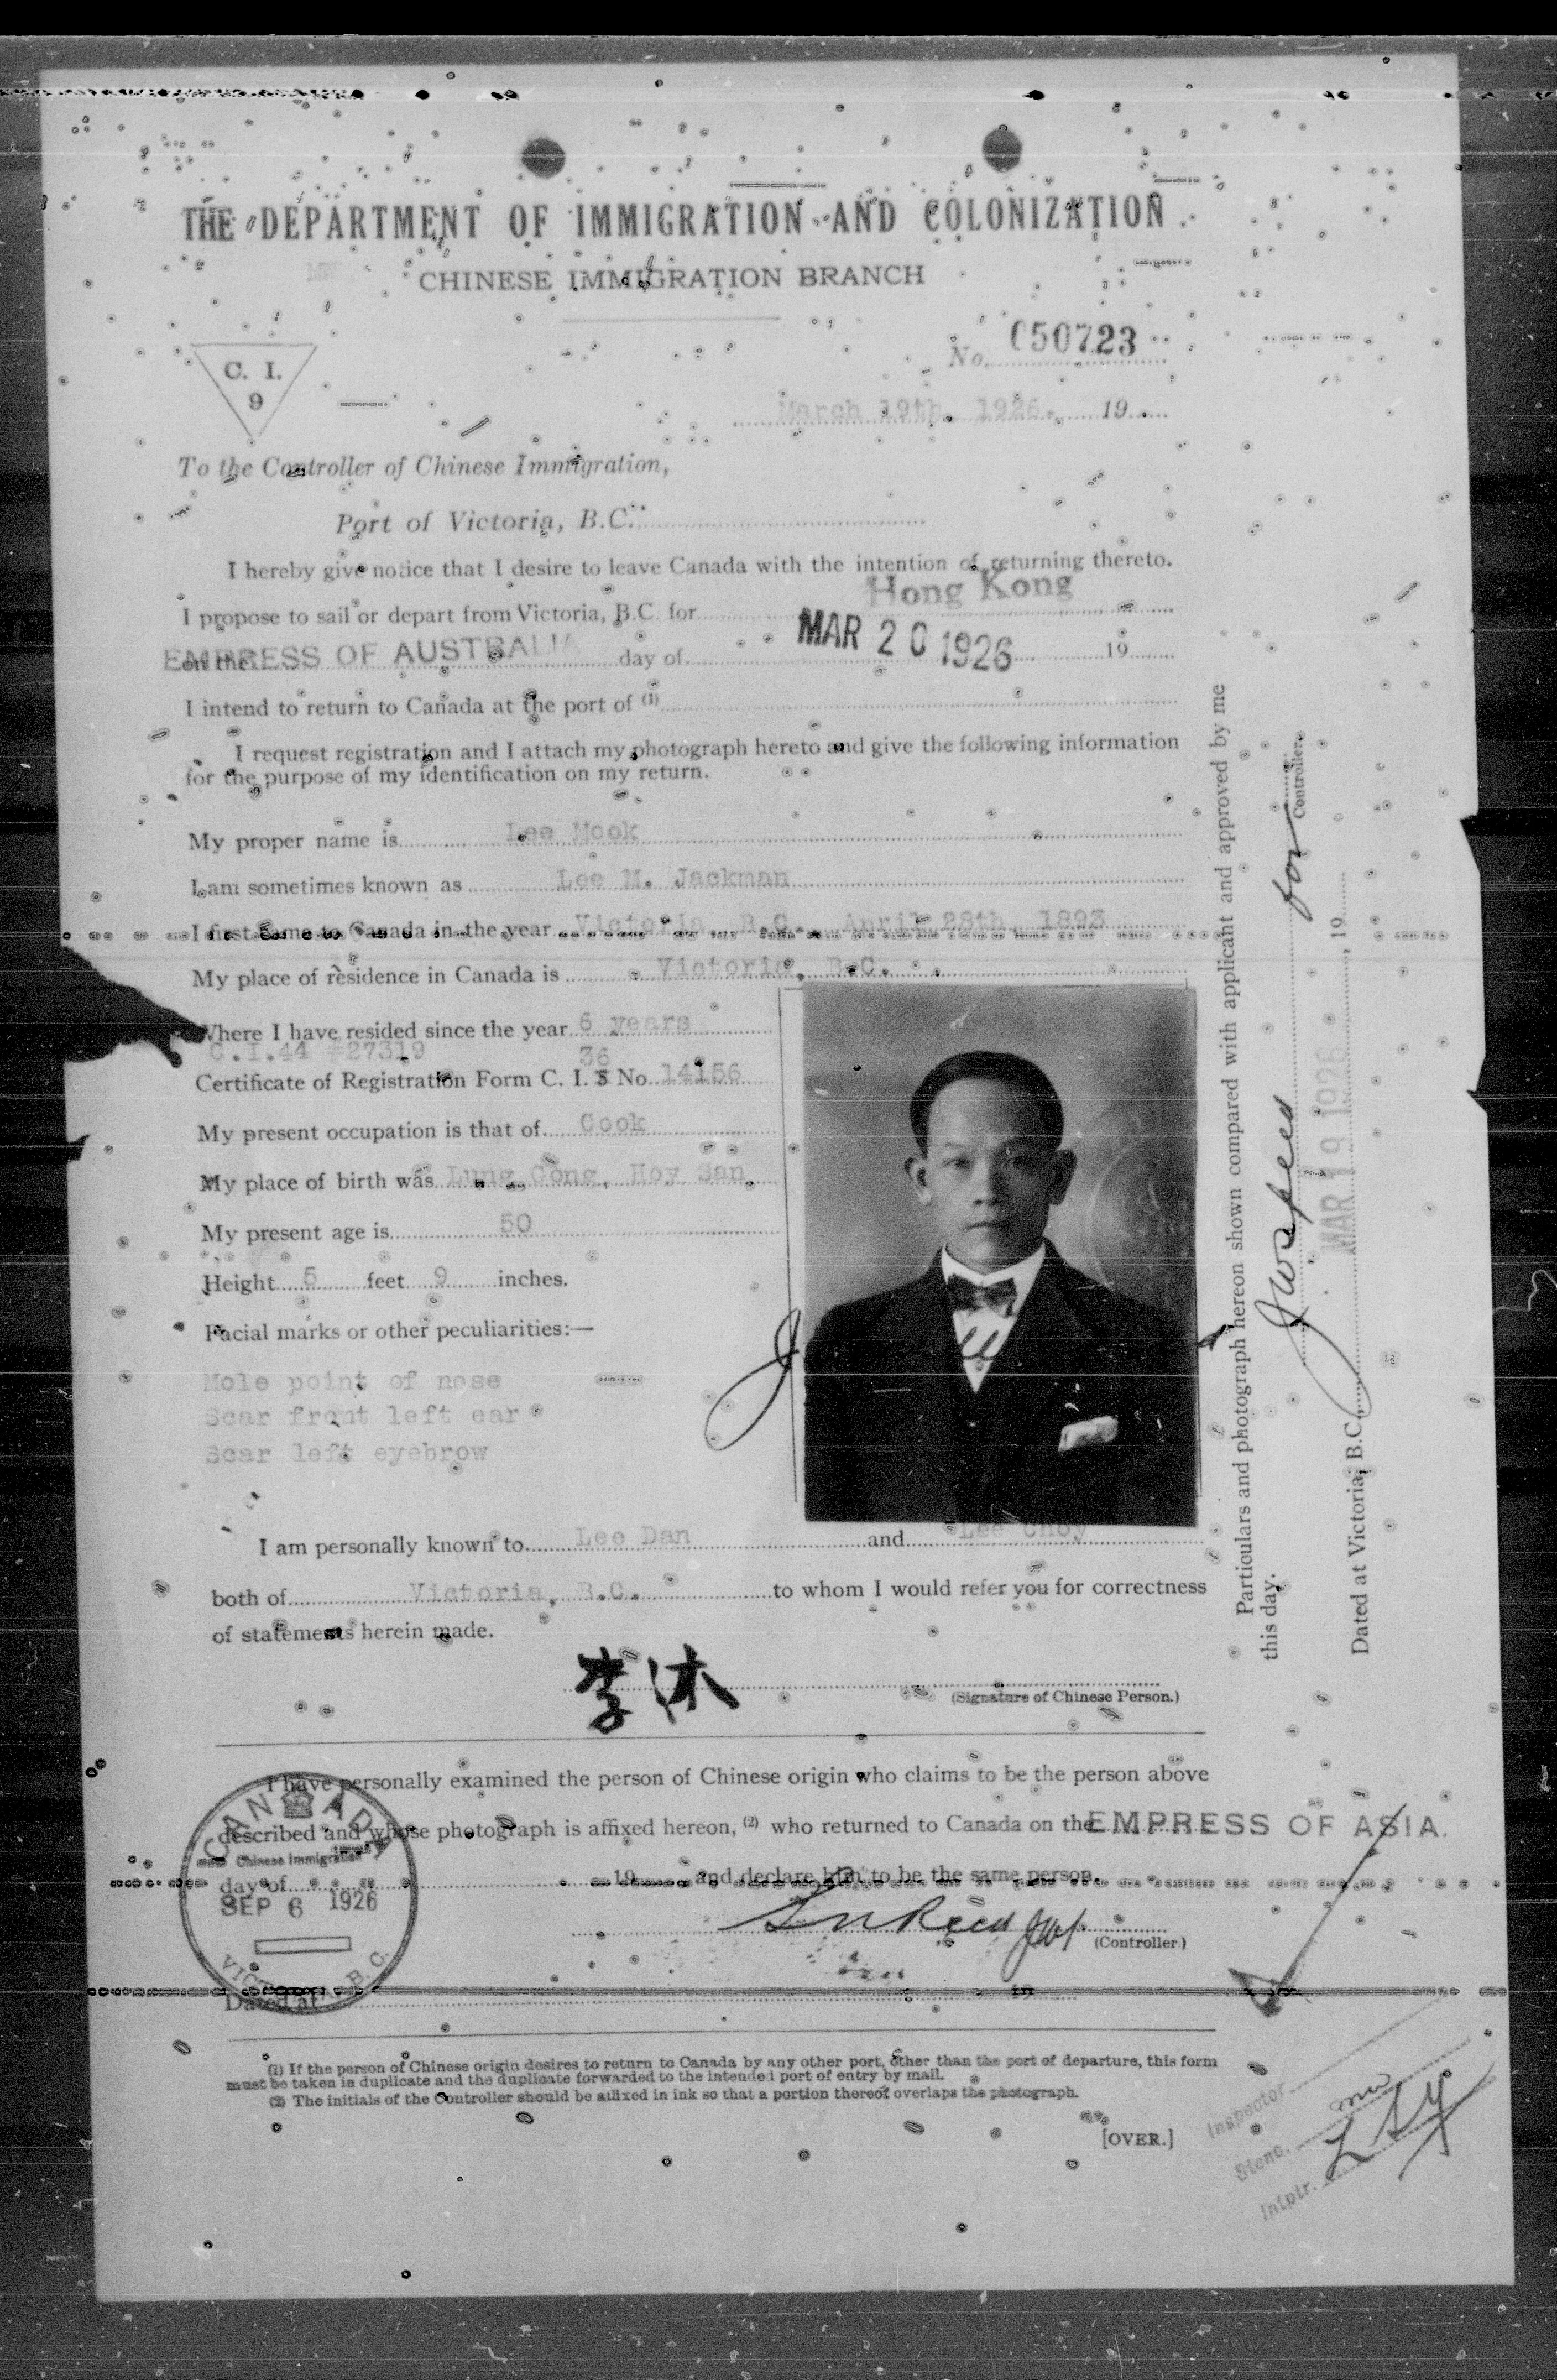 THE DEPARTMENT OF IMMIGRATION AND COLONIZATION
CHINESE IMMIGRATION BRANCH
C. I.
9
No. 050723
March 19th, 1926. 19
To the Controller of Chinese Immigration,
Port of Victoria, B.C.
I hereby give notice that I desire to leave Canada with the intention of returning thereto.
I propose to sail or depart from Victoria, B.C. for Hong Kong
on the EMPRESS OF AUSTRALIA day of MAR 20 1926 19
I intend to return to Canada at the port of (1)
I request registration and I attach my photograph hereto and give the following information
for the purpose of my identification on my return.
My proper name is Lee Mook
I am sometimes known as Lee M. Jackman
I first came to Canada in the year Victoria, B.C., April 28th, 1893
My place of residence in Canada is Victoria, B.C.
Where I have resided since the year 6 years
C.I.44 #27319
36
Certificate of Registration Form C. I. 5 No. 14156
My present occupation is that of Cook
My place of birth was Lung Gong, Hoy San,
My present age is 50
Height 5 feet 9 inches.
Facial marks or other peculiarities:—
Mole point of nose
Scar front left ear
Scar left eyebrow
I am personally known to Lee Dan and Lee Choy
both of Victoria, B.C. to whom I would refer you for correctness
of statements herein made.
李沐
(Signature of Chinese Person.)
I have personally examined the person of Chinese origin who claims to be the person above
described and whose photograph is affixed hereon, (2) who returned to Canada on the EMPRESS OF ASIA.
day of 19 and declare him to be the same person.
(Controller)
Dated at 19
CANADA
Chinese Immigration
SEP 6 1926
VICTORIA, B.C.
(1) If the person of Chinese origin desires to return to Canada by any other port, other than the port of departure, this form
must be taken in duplicate and the duplicate forwarded to the intended port of entry by mail.
(2) The initials of the Controller should be affixed in ink so that a portion thereof overlaps the photograph.
[OVER.]
Inspector
Steno.
Intptr.
Particulars and photograph hereon shown compared with applicant and approved by me
this day.
for Controller.
Dated at Victoria, B.C., MAR 19 1926, 19